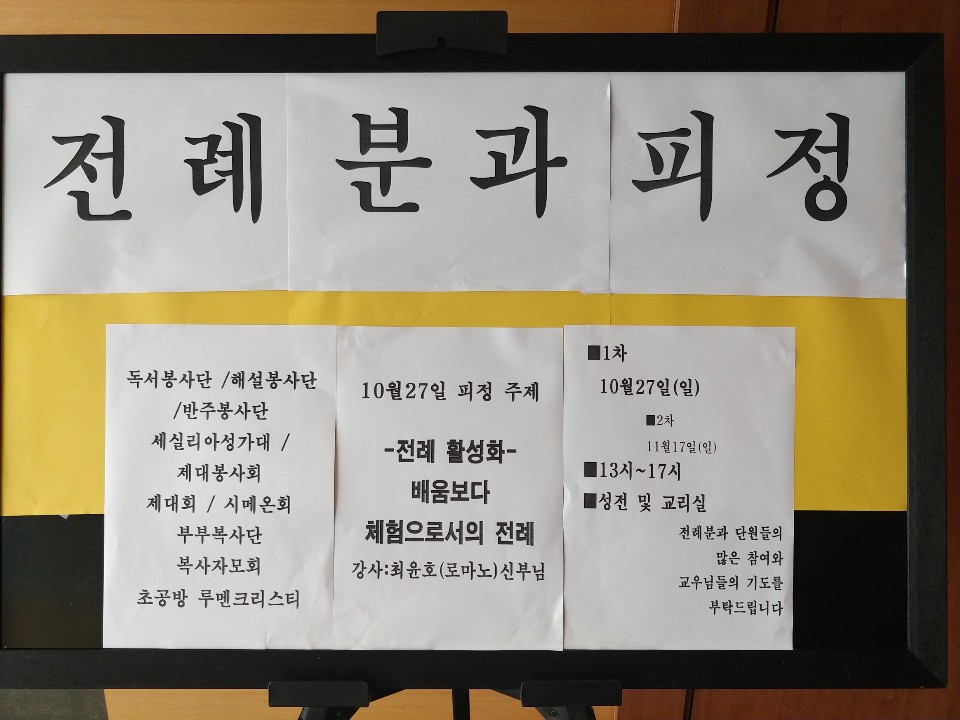 전례분과피정
독서봉사단 /해설봉사단
/반주봉사단
세실리아성가대 /
제대봉사회
제대회 / 시메온회
부부복사단
복사자모회
초공방 루멘크리스티
10월27일 피정 주제
-전례 활성화-
배움보다
체험으로서의 전례
강사:최윤호(로마노)신부님
■1차
10월27일(일)
■2차
11월17일(일)
■13시~17시
■성전 및 교리실
전례분과 단원들의
많은 참여와
교우님들의 기도를
부탁드립니다